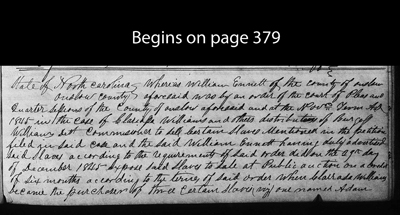 Begins on page 379
State of North carolina Whereas William Ennett of the county of onslow
onslow county aforesaid was by an order of the court of Pleas and
Quarter sessions of the County of onslow aforesaid and at the Nov. Term AD
1845 in the case of Williams and others distributees of
Williams dct Commissioner to sell certain Slaves Mentioned in the petition
filed in said case and the said William Ennett having duly advertised
said Slaves according to the requirements of said order did on the 29th day
of December 1845 expose said Slaves to sale at Public auction on a credit
of six months according to the terms of said order when Williams
became the purchaser of three Certain Slaves viz one named Adam